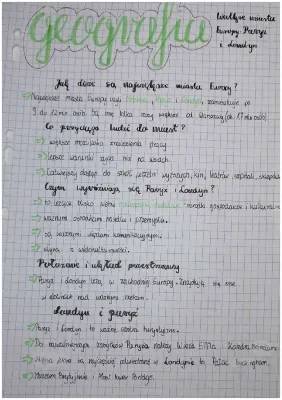 geografia
Wielkie miasta
Europy: Paryż
i Londyn
Jak duże są największe miasta Europy?
Największe miasta Europy czyli i zamieszkuje po
9 do 12 mln osób. Są one kilka razy większe od Warszawy (ok. 1,7 mln osób)
Co przyciąga ludzi do miast?
większe możliwości znalezienia pracy
lepsze warunki życia niż na wsiach.
Łatwiejszy dostęp do szkół wyższych, kin, teatrów, szpitali,
Czym wyróżniają się Paryż i Londyn?
to liczące ośrodki gospodarcze i kulturalne
ważnymi ośrodkami handlu i przemysłu.
są ważnymi węzłami komunikacyjnymi.
słyną z wielokulturowości.
Położenie i układ przestrzenny
Paryż i Londyn leżą w zachodniej Europy. Znajdują się one
w dolinach nad rzekami.
Londyn i paryż
Paryż i Londyn to ważne centra turystyczne.
Do najważniejszych zabytków Paryża należy Wieża Eiffla i Katedra
jedną z najczęściej odwiedzanych w Londynie to Pałac Buckingham.
Muzeum Brytyjskie i Most Tower Bridge.